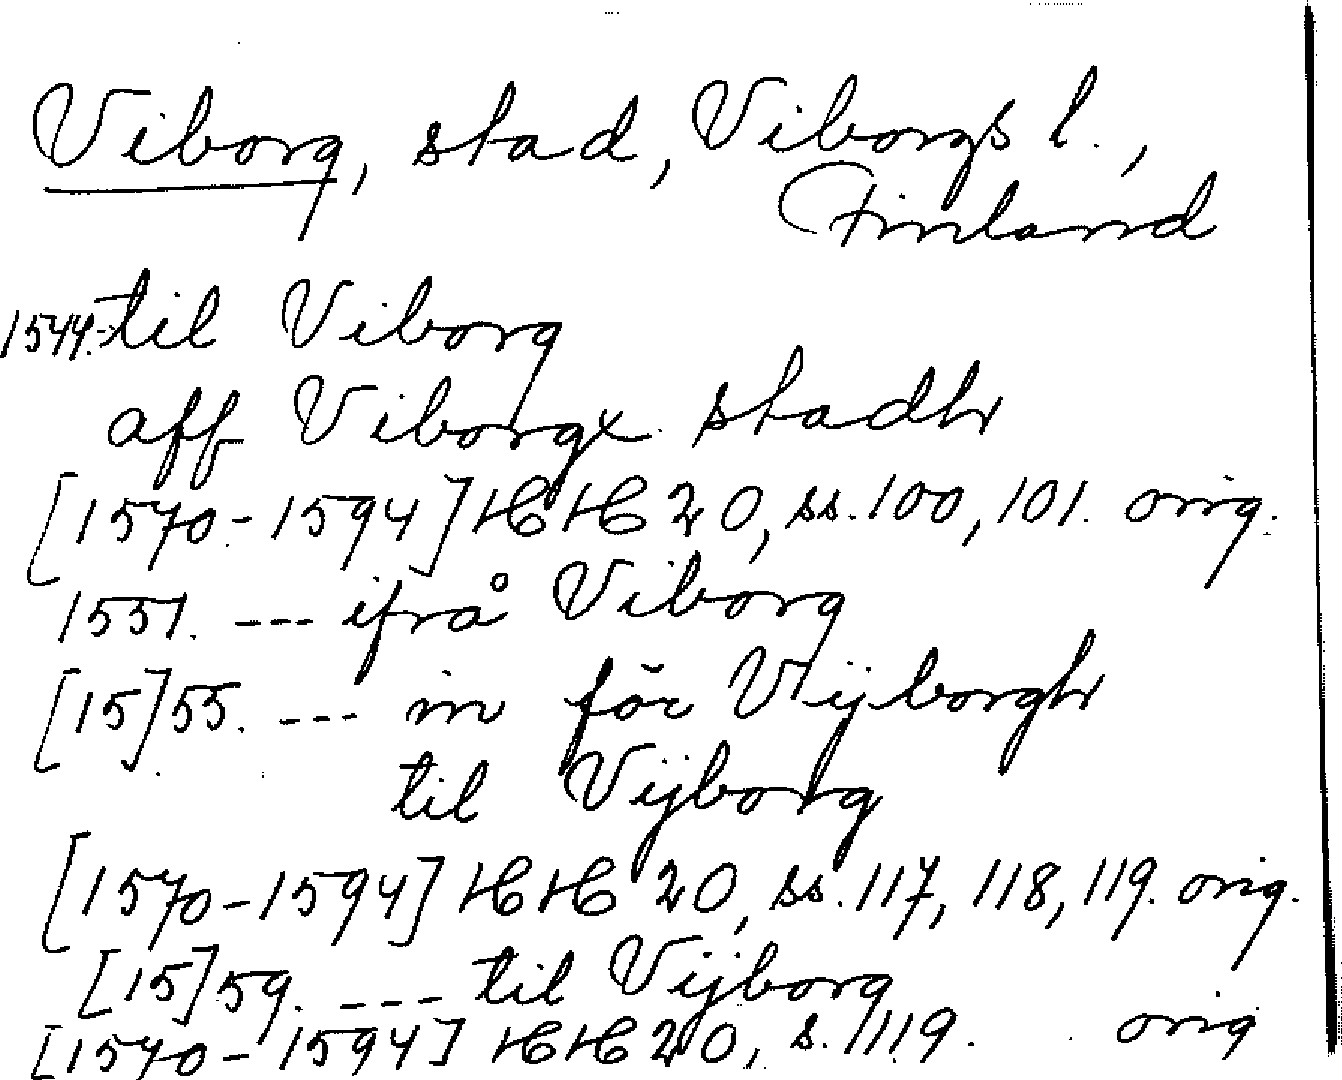 Viborg, stad, Viborgs l.,
Finland
1544.- til Viborg
aff Viborgx stadh
[1570-1594] HH 20, ss. 100, 101. orig.
1551. --- ifrå Viborg
[15]55. --- in för Vijborgh
til Vijborg
[1570-1594] HH 20, ss. 117, 118, 119. orig.
[15]59. --- til Vijborg
[1570-1594] HH 20, s. 119. orig